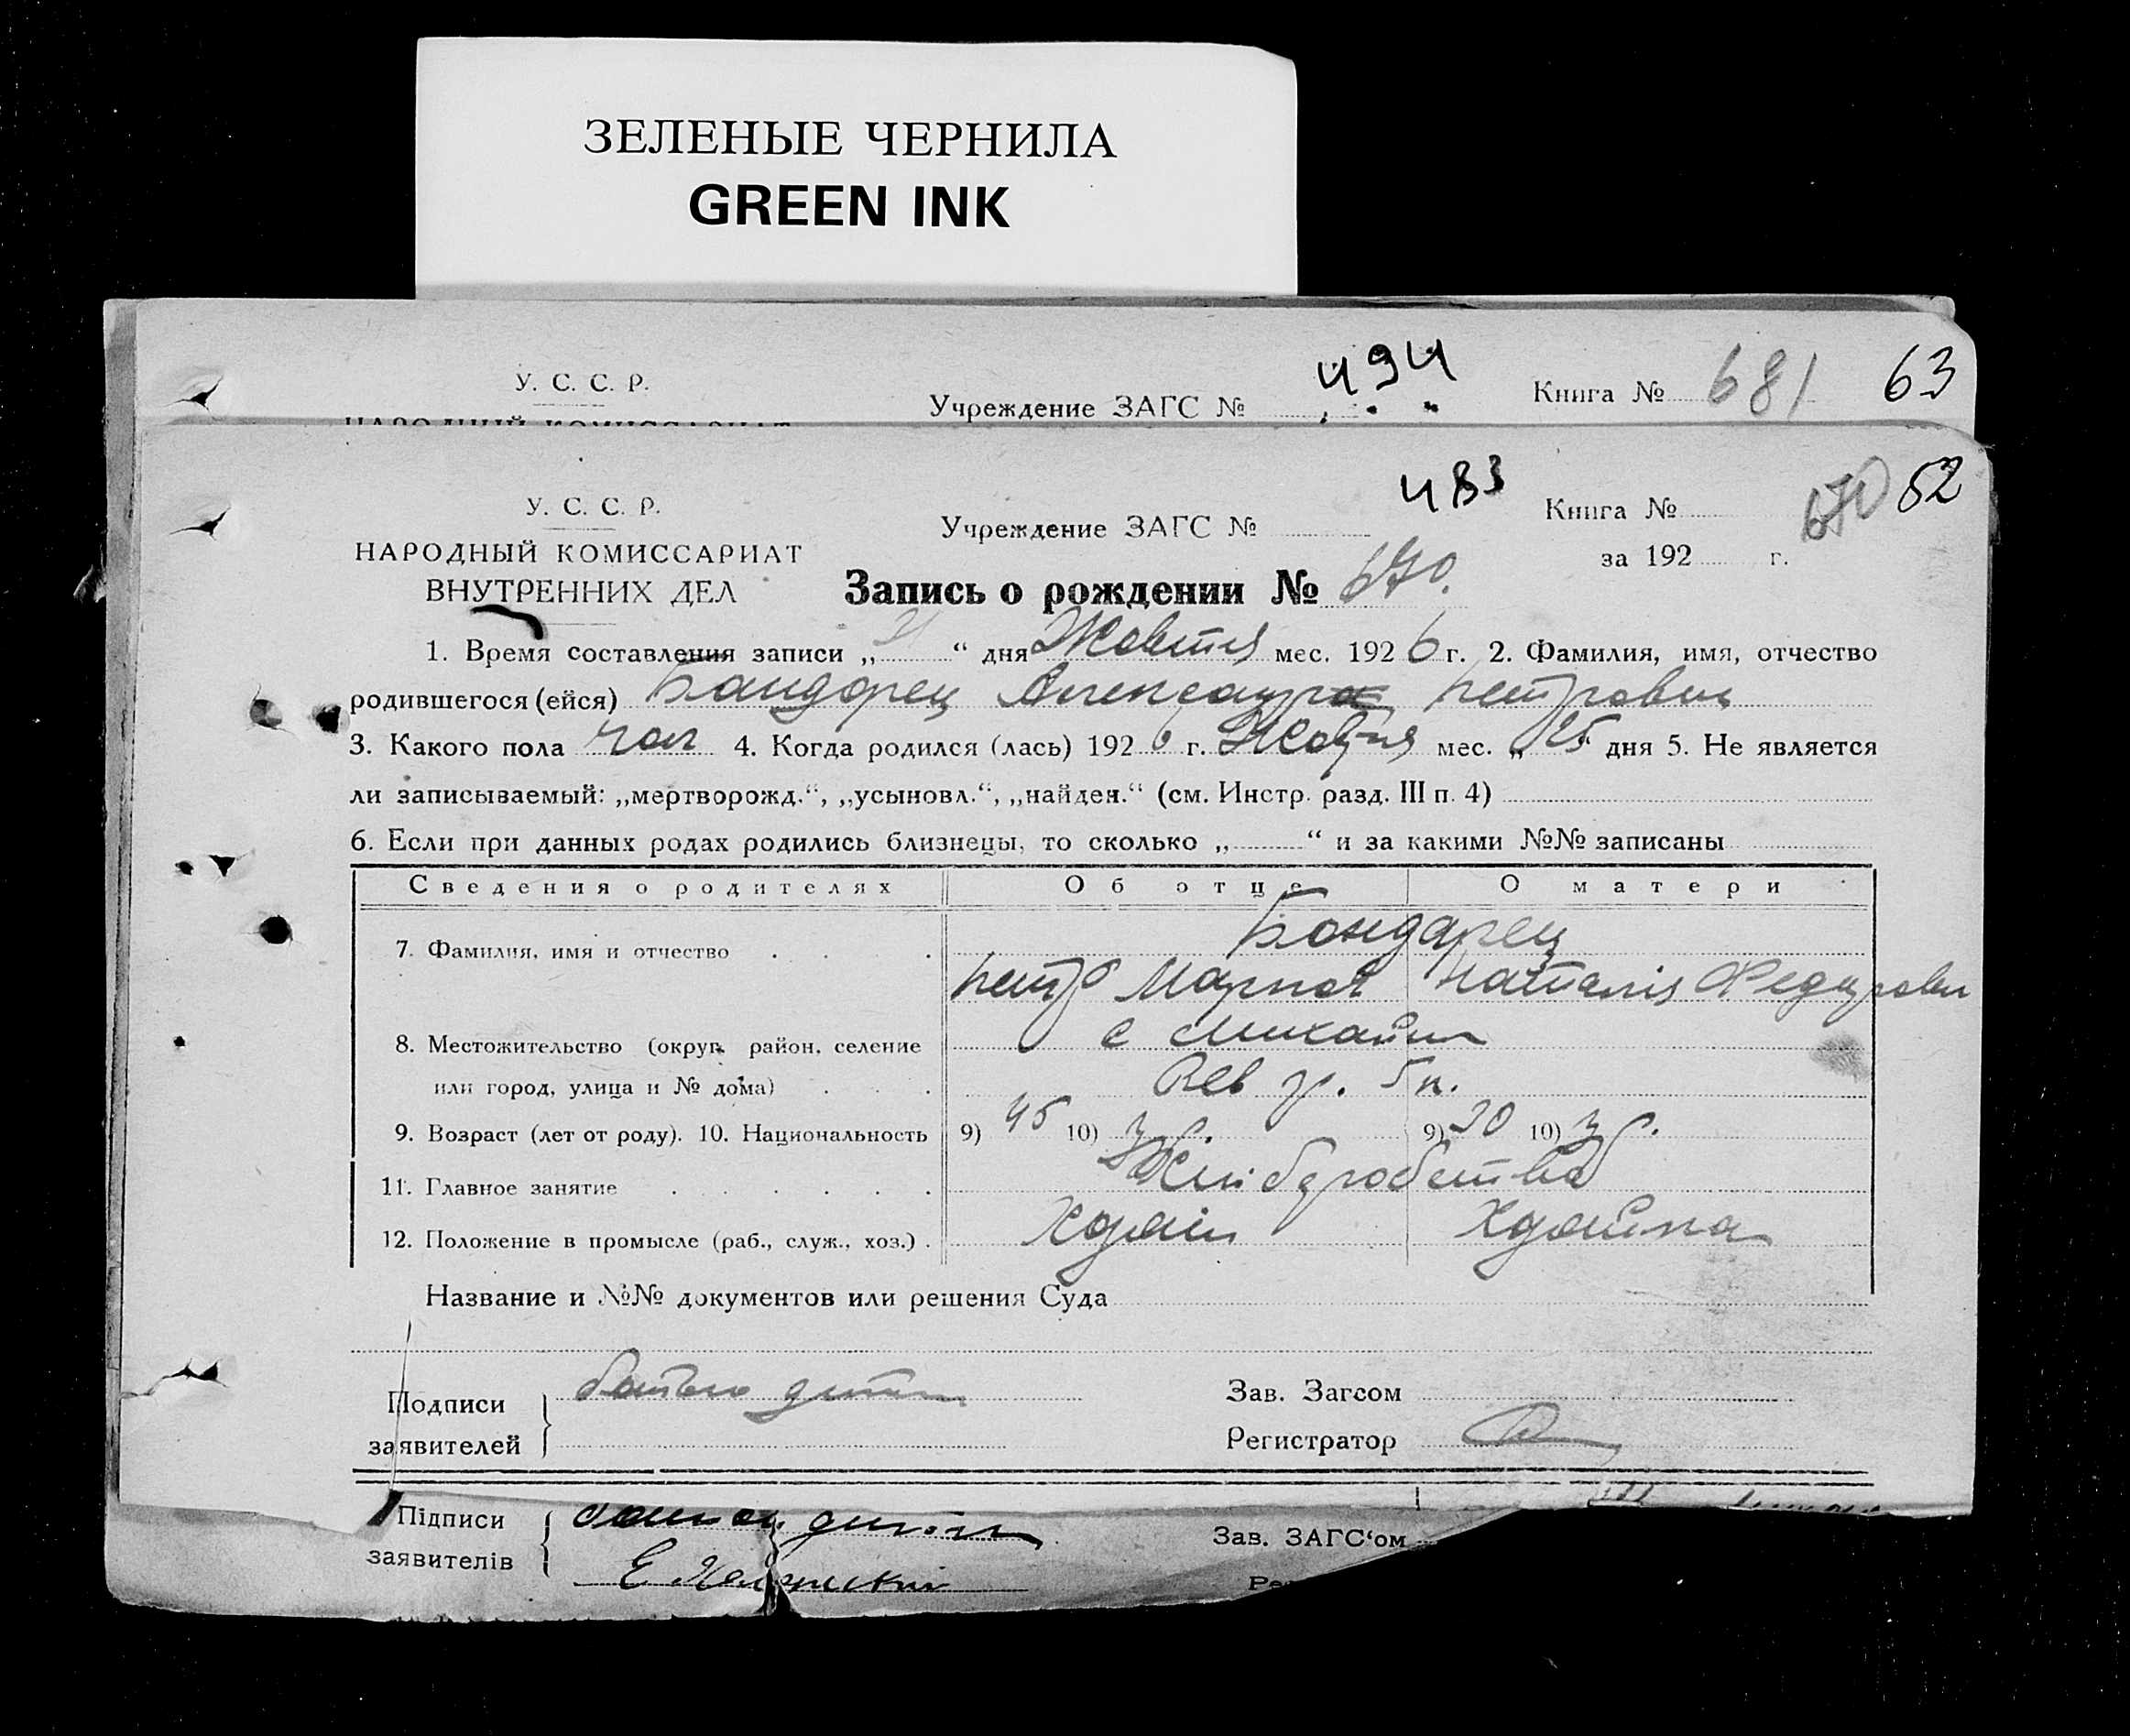 ЗЕЛЕНЫЕ ЧЕРНИЛА
GREEN INK
У. С. С. Р.
Учреждение ЗАГС №
494
Книга № 681 63
У. С. С. Р.
НАРОДНЫЙ КОМИССАРИАТ
ВНУТРЕННИХ ДЕЛ
Учреждение ЗАГС №
483
Книга № 670 52
за 192 г.
Запись о рождении № 670.
1. Время составления записи „ “ дня Жовтня мес. 1926 г. 2. Фамилия, имя, отчество
родившегося (ейся) Бондарец Александра Петрович
3. Какого пола чол 4. Когда родился (лась) 1926 г. Жовтня мес. „25“ дня 5. Не является
ли записываемый: „мертворожд.“, „усыновл.“, „найден.“ (см. Инстр. разд. III п. 4)
6. Если при данных родах родились близнецы, то сколько „ “ и за какими №№ записаны
Сведения о родителях Об отце О матери
7. Фамилия, имя и отчество Бондарец
Петро Марков Наталія
8. Местожительство (округ, район, селение
или город, улица и № дома)
9. Возраст (лет от роду). 10. Национальность 9) 45 10) 9) 10)
11. Главное занятие Хліборобство
12. Положение в промысле (раб., служ., хоз.)
Название и №№ документов или решения Суда
Подписи
заявителей
батько дитини
Зав. Загсом
Регистратор
Підписи
заявителів
Зав. ЗАГС‘ом